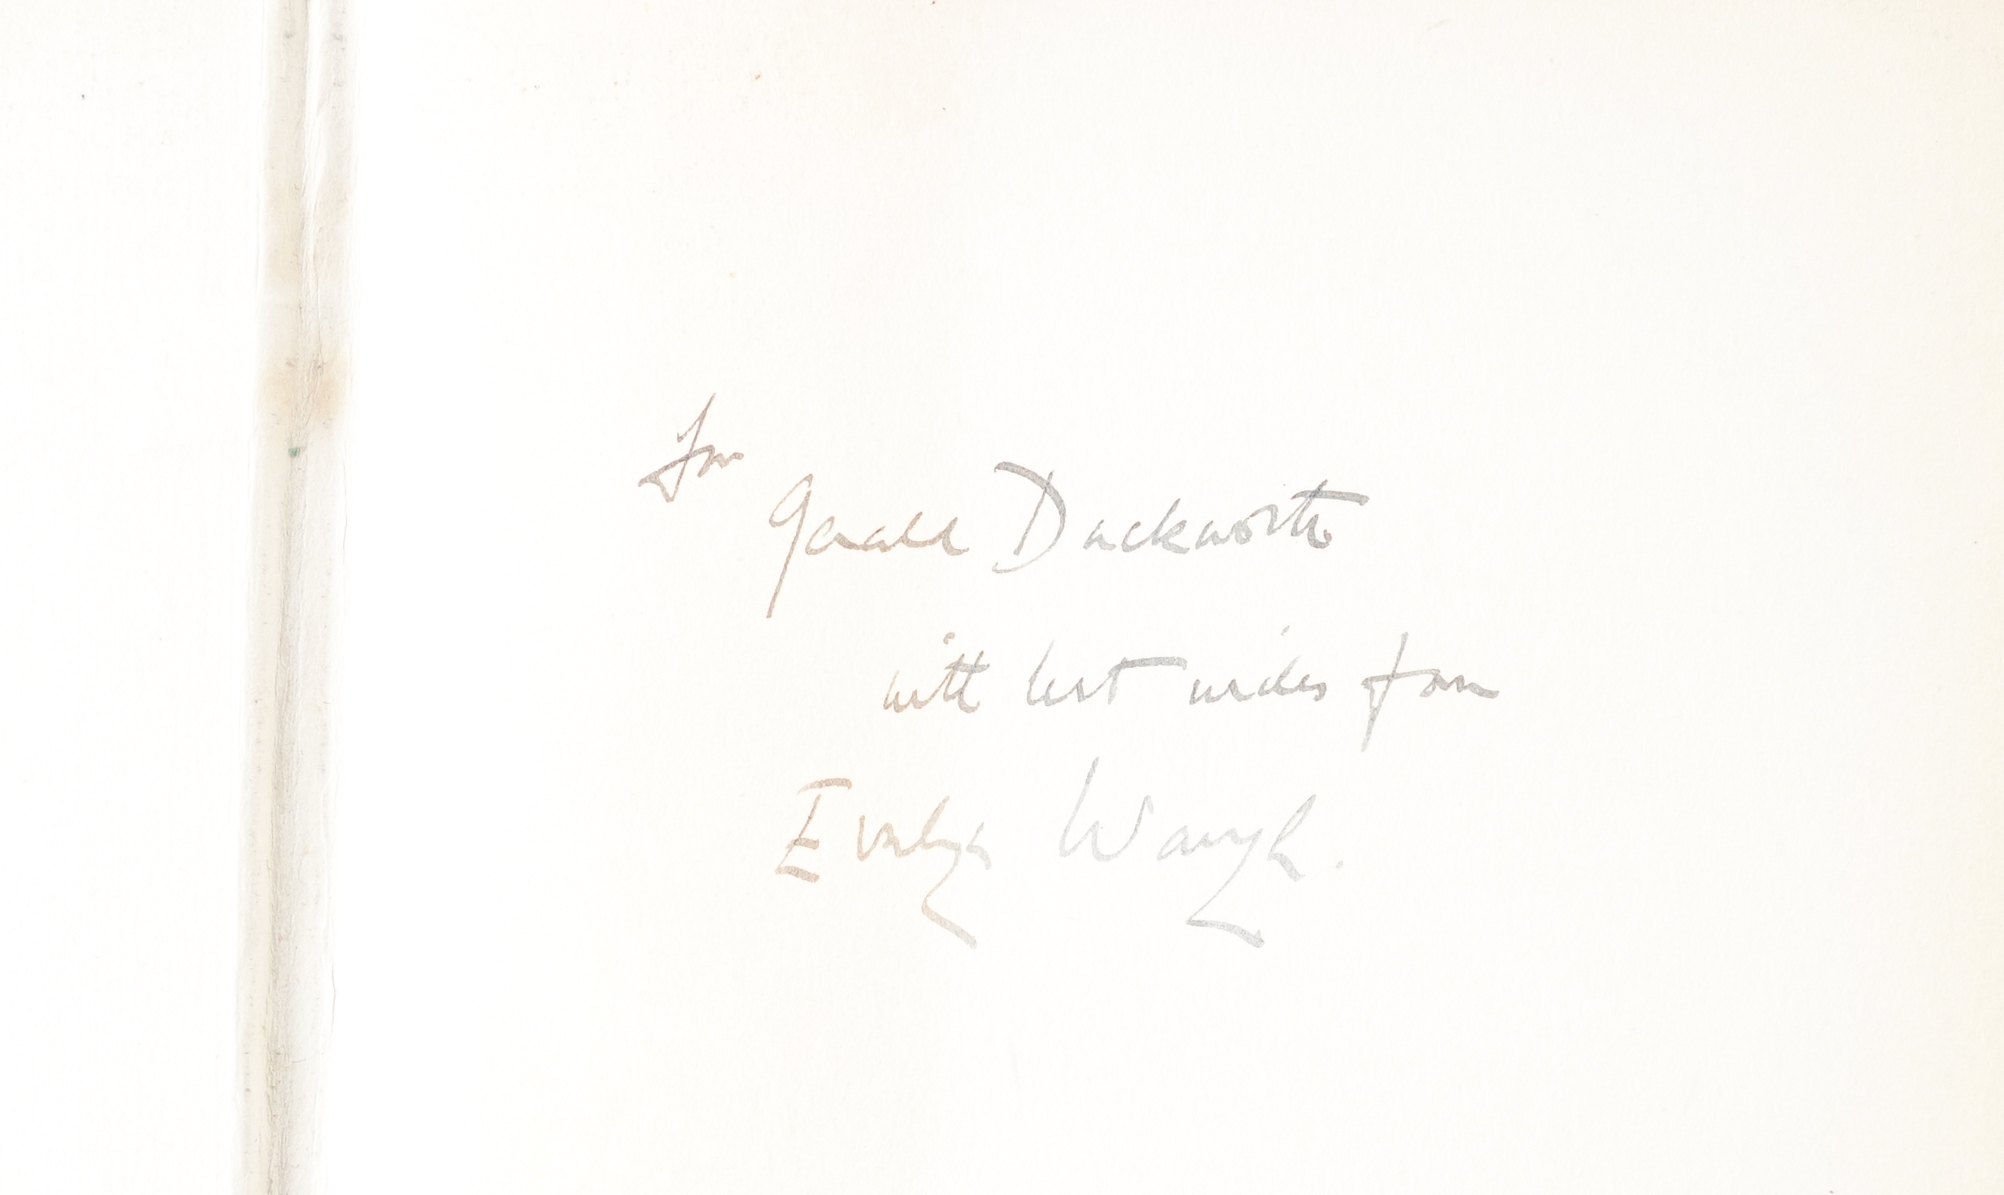 For
Gerald Duckworth
with best wishes from
Evelyn Waugh.